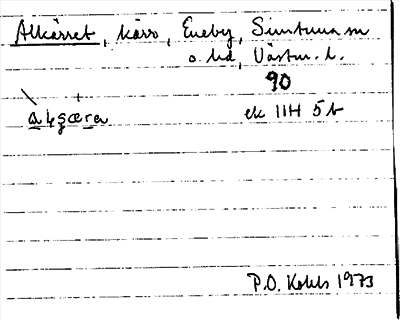 Alkärret, kärr, Eneby, Simtuna sn
o. hd, Västm. l.
90
ek 11H 5b
P.O. Kohls 1973